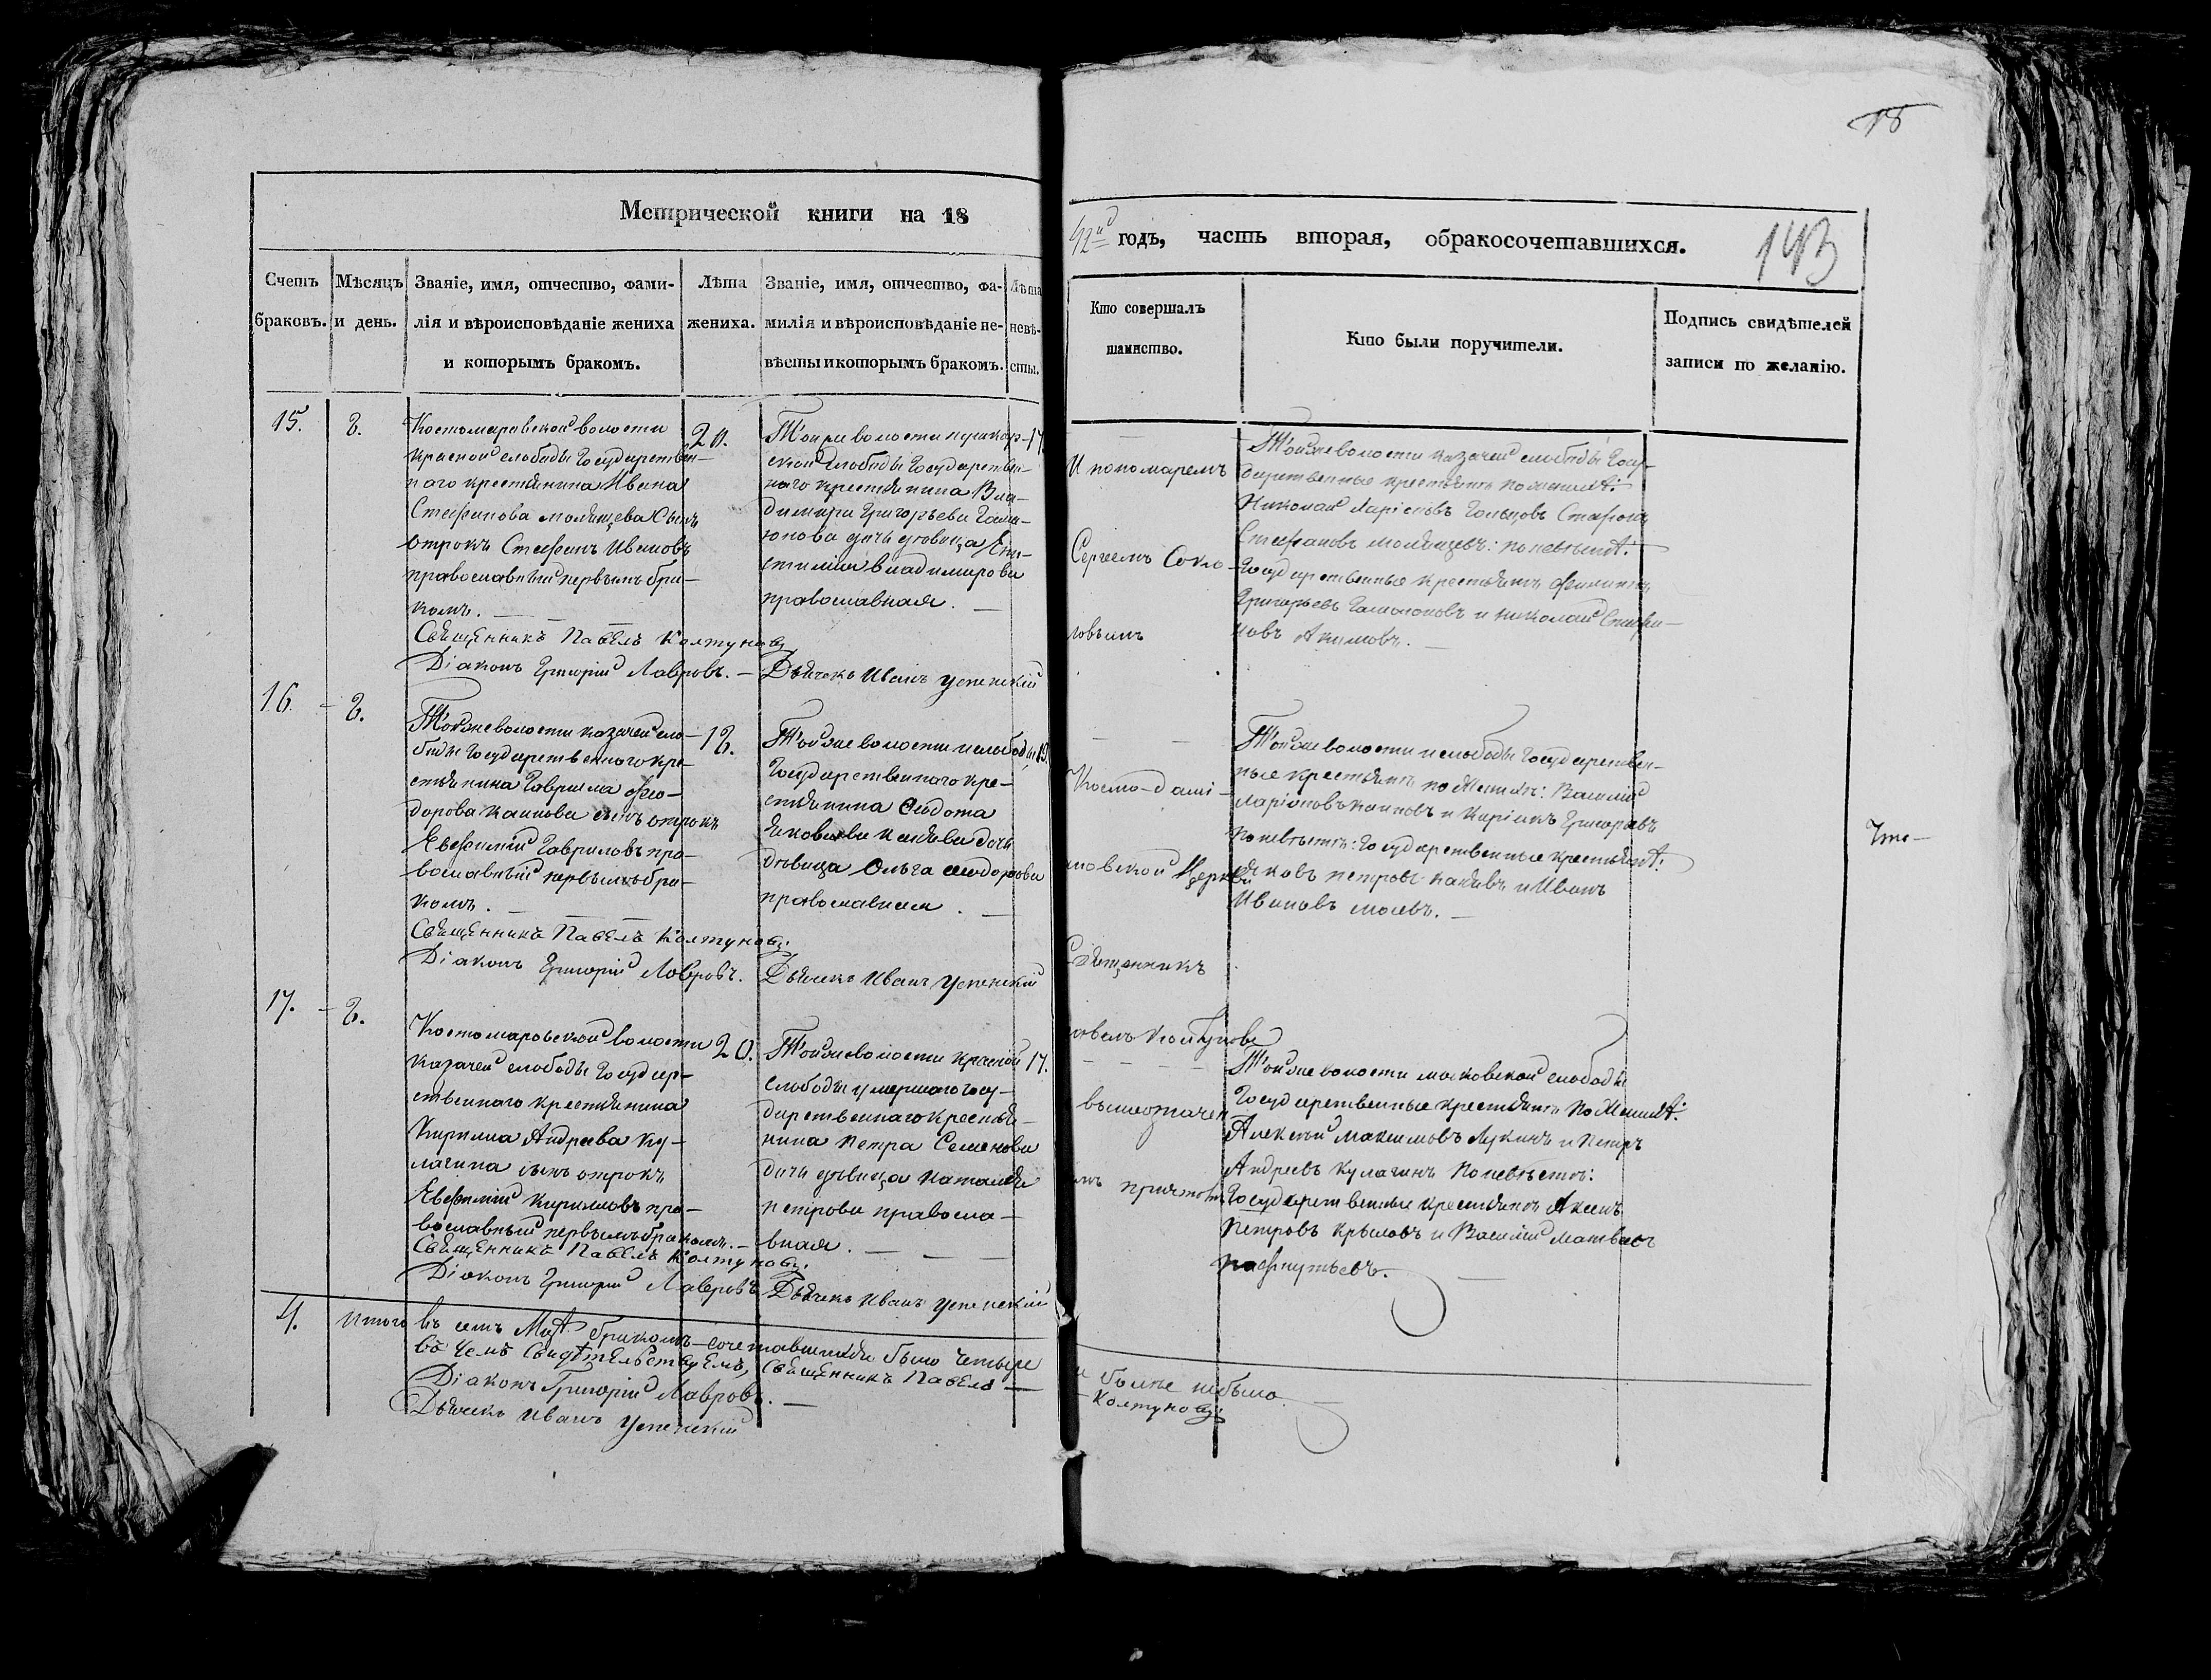 18
Метрической книги на 18
42й годъ, часть вторая, обракосочетавшихся.
143
Счетъ браковъ.
Мѣсяцъ и день.
Званіе, имя, отчество, фами-
лія и вѣроисповѣданіе жениха
и которымъ бракомъ.
Лѣта
жениха.
Званіе, имя, отчество, фа-
милія и вѣроисповѣданіе не-
вѣсты и которымъ бракомъ.
Лѣта
невѣ-
сты.
Кто совершалъ
таинство.
Кто были поручители.
Подпись свидѣтелей
записи по желанію.
15.
8.
Костомаровской волости
красной слободы Государствен-
наго крестьянина Ивана
Стефанова сынъ
отрокъ Стефанъ Ивановъ
православный первымъ бра-
комъ. —
20.
Той же волости пушкар-
ской слободы Государствен-
наго крестьянина Вла-
димира Григорьева Гама-
юнова дочь девица
Владимирова
православная. —
17
И пономаремъ
Сергеемъ Соко-
ловымъ
Той же волости казачей слободы Госу-
дарственные крестьяне по женихѣ:
Николай Ларіоновъ Стефанъ
Стефановъ по невѣстѣ:
Государственные крестьяне
Григорьевъ Гамаюновъ и Николай Стефа-
новъ Акимовъ. —
Священникъ Павелъ Колтуновъ
Діаконъ Григорій Лавровъ. — Дьячекъ Иванъ Успенскій
16. —
8.
Той же волости казачей сло-
боды Государственнаго кре-
стьянина Гавриила Фео-
дорова сынъ отрокъ
Евфимій Гавриловъ пра-
вославный первымъ бра-
комъ. —
18.
Той же волости и слободы
Государственнаго кре-
стьянина Федота
дочь
девица Ольга Феодорова
православная. —
19.
Космо-дамі-
ановской Церкви
Священникъ
Павелъ Колтуновъ
Той же волости и слободы Государствен-
ные крестьяне по Женихѣ: Василій
Ларіоновъ и Григорьевъ
по невѣстѣ: Государственные крестьяне:
Яковъ Петровъ и Иванъ
Ивановъ —
Что —
Священникъ Павелъ Колтуновъ.
Діаконъ Григорій Лавровъ. Дьячекъ Иванъ Успенскій
17. —
8.
Костомаровской волости
казачей слободы Государ-
ственнаго крестьянина
Кирилла Андреева Ку-
лагина сынъ отрокъ
Евфимій Кириловъ пра-
вославный первымъ бракомъ. —
20.
Той же волости красной
слободы умершаго Госу-
дарственнаго крестья-
нина Петра Семенова
дочь девица Наталья
Петрова правосла-
вная. —
17.
вышеозначен-
нымъ причтомъ
Той же волости московской слободы
Государственные крестьяне по Женихѣ:
Алексѣй Максимовъ Лукинъ и Петръ
Андреевъ Кулагинъ по невѣстѣ:
Государственные крестьяне
Петровъ Крыловъ и Василій Матвеевъ
Пафнутьевъ. —
Священникъ Павелъ Колтуновъ.
Діаконъ Григорій Лавровъ Дьячекъ Иванъ Успенскій
4.
Итого въ семъ бракомъ-сочетавшихся было четыре
и болѣе небыло.
въ чемъ Свидѣтельствуемъ, Священникъ Павелъ —
Колтуновъ:
Діаконъ Григорій Лавровъ. —
Дьячекъ Иванъ Успенскій